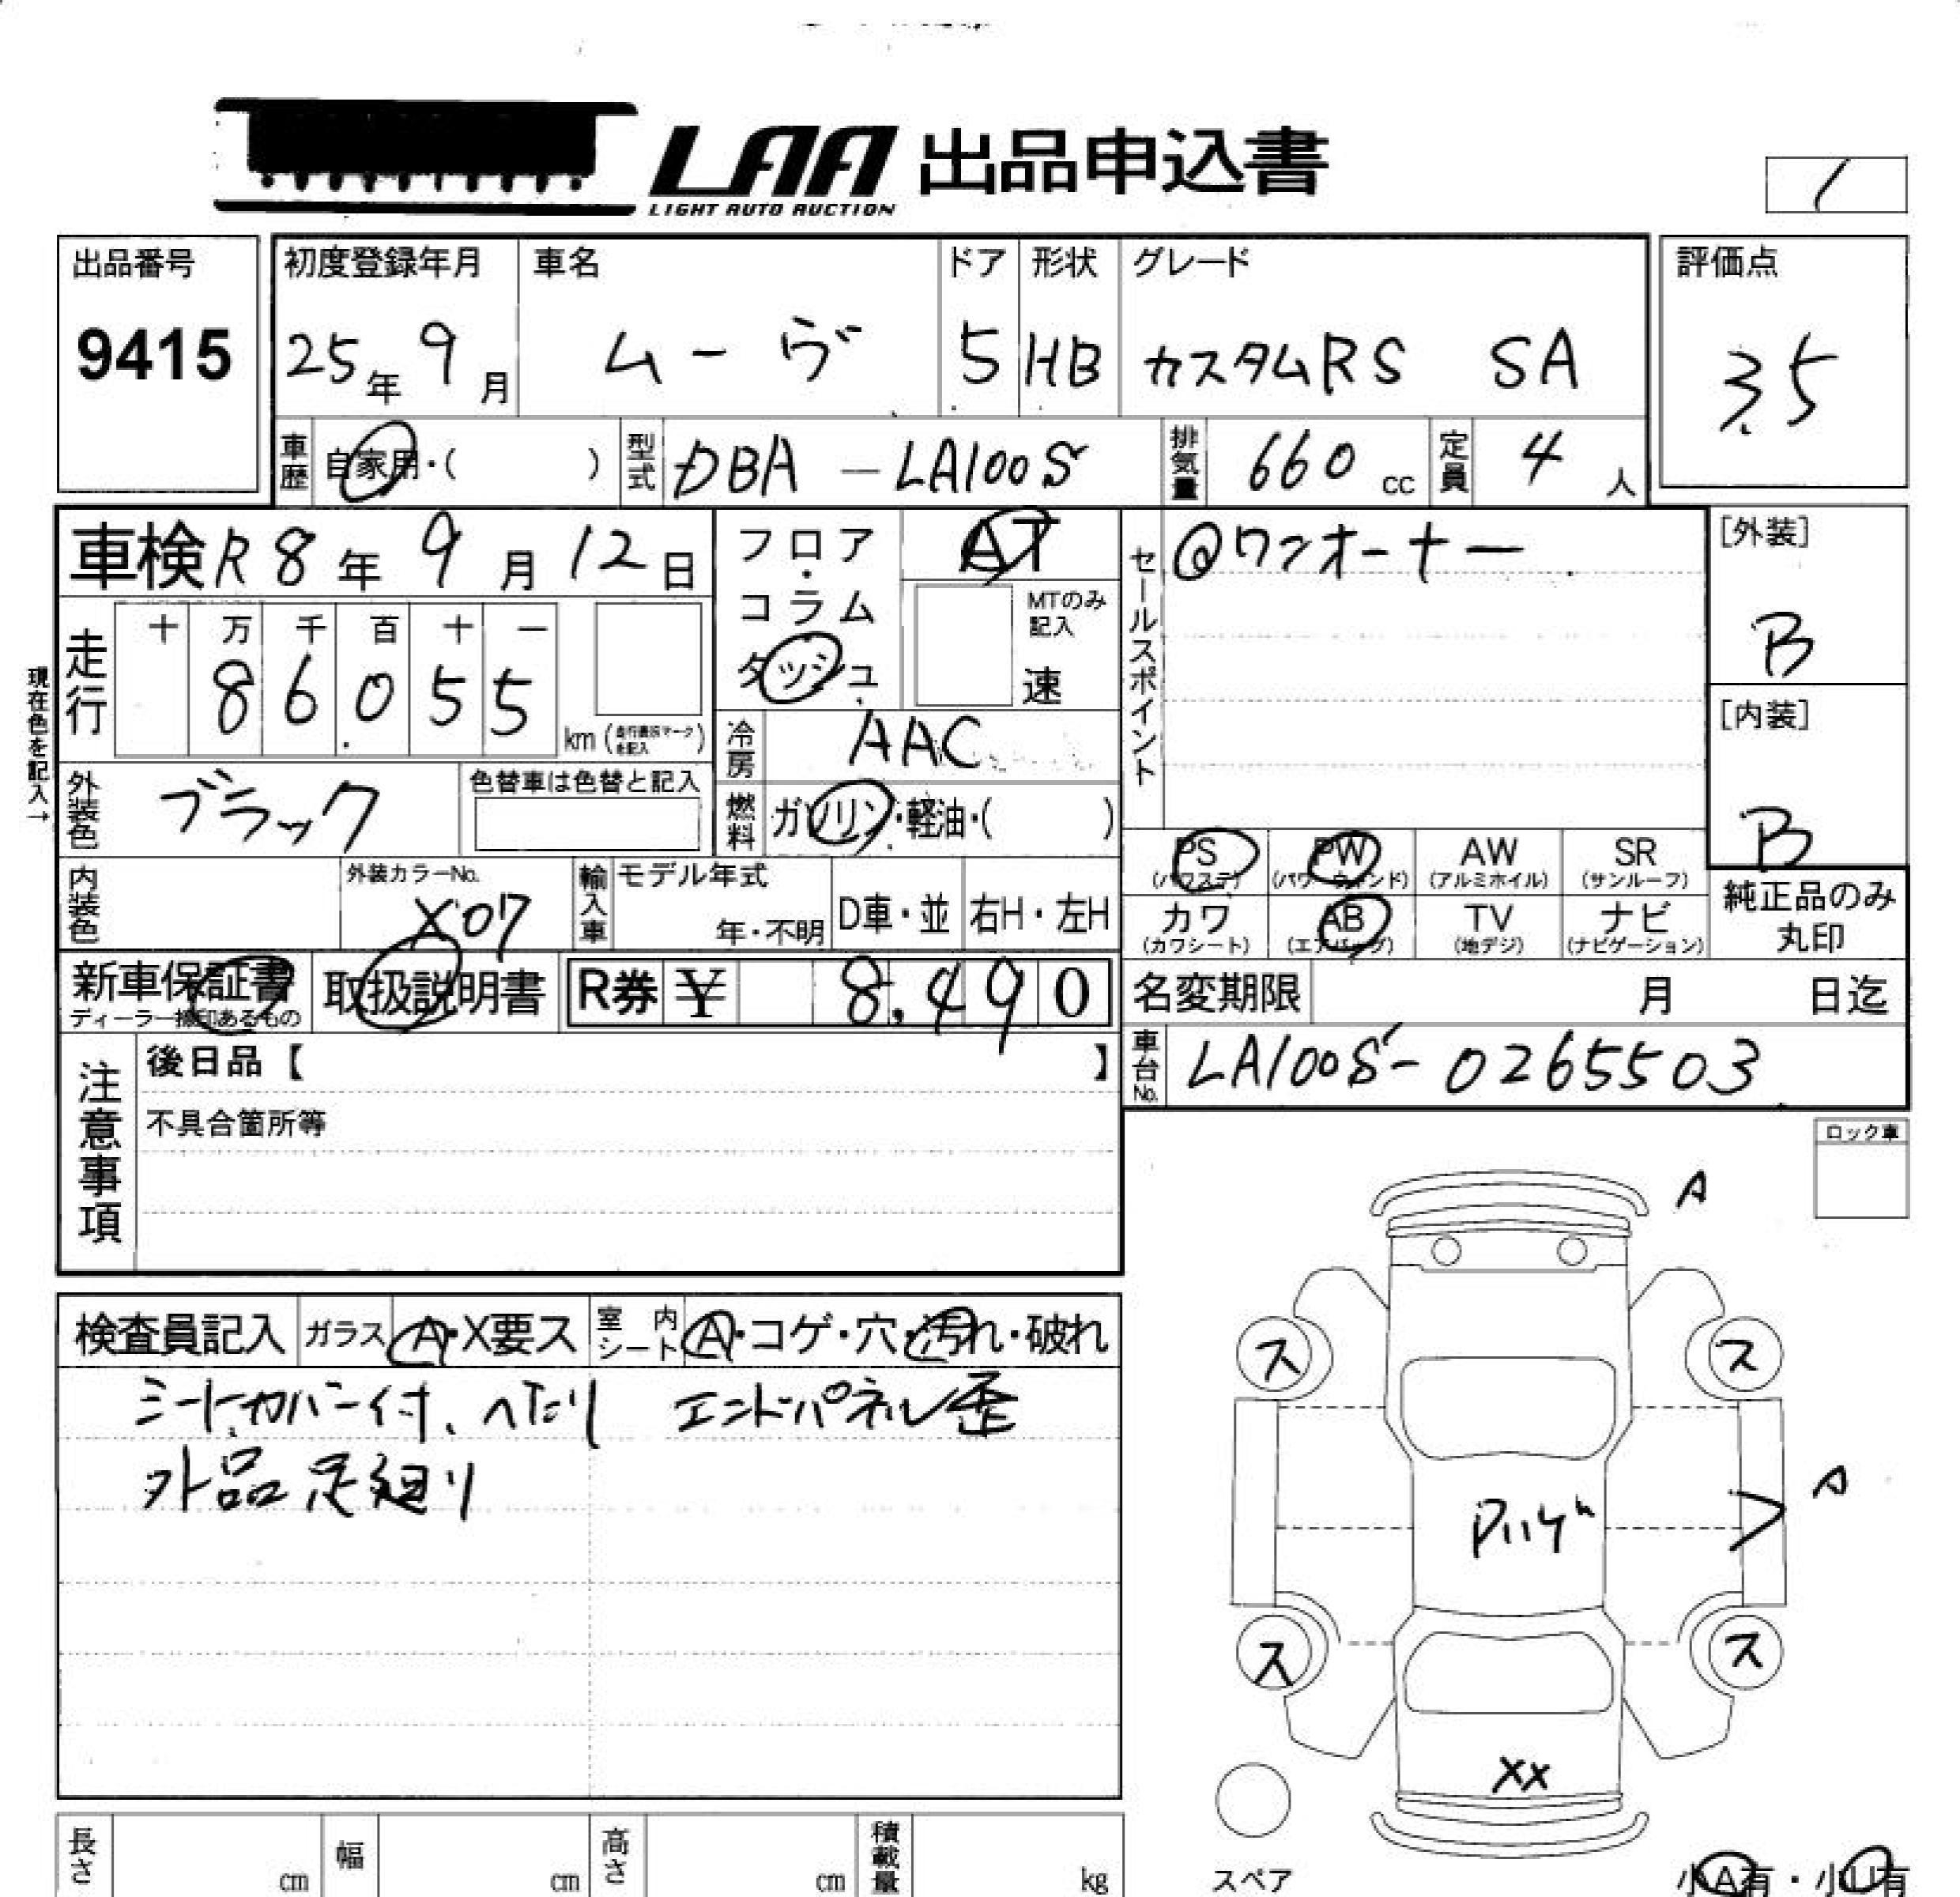 LAA 出品申込書
LIGHT AUTO AUCTION
出品番号
9415
初度登録年月
25年9月
車名
ムーヴ
ドア
5
形状
HB
グレード
カスタムRS SA
評価点
3.5
車歴 自家用・( )
型式 DBA-LA100S
排気量 660 cc
定員 4 人
車検 R8年9月12日
フロア・コラム
ダッシュ
AT
MTのみ記入
速
セールスポイント
@ワンオーナー
[外装]
B
[内装]
B
現在色を記入→
走行
十 万 千 百 十 一
8 6 0 5 5
km (走行不明マークを記入)
冷房 AAC
外装色 ブラック
色替車は色替と記入
燃料 ガソリン・軽油・( )
内装色
外装カラーNo.
X07
輸入車
モデル年式
年・不明
D車・並
右H・左H
PS (パワステ)
PW (パワーウィンド)
AW (アルミホイル)
SR (サンルーフ)
カワ (カワシート)
AB (エアバッグ)
TV (地デジ)
ナビ (ナビゲーション)
純正品のみ丸印
新車保証書
ディーラー捺印あるもの
取扱説明書
R券 ¥ 8,490
名変期限 月 日迄
車台No. LA100S-0265503
注意事項
後日品【 】
不具合箇所等
ロック車
検査員記入
ガラス A・X要ス
室内シート A・コゲ・穴・汚れ・破れ
シートカバー付、ヘタリ エンドパネル歪
外品足廻り
A
ス ス
A
ス ス
XX
スペア
小A有・小U有
長さ cm
幅 cm
高さ cm
積載量 kg